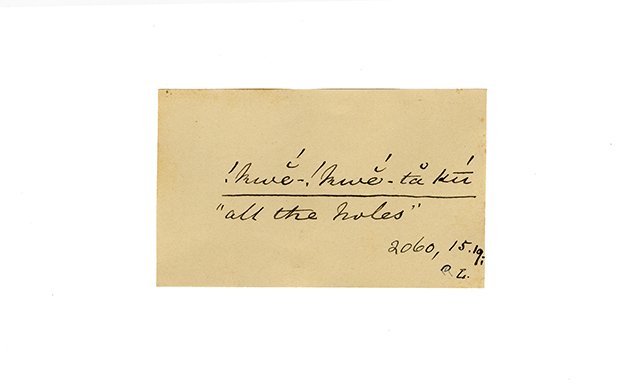 !kwĕ́-!kwĕ́-tå kú̄
"all the holes"
2060, 15.19.
R L.